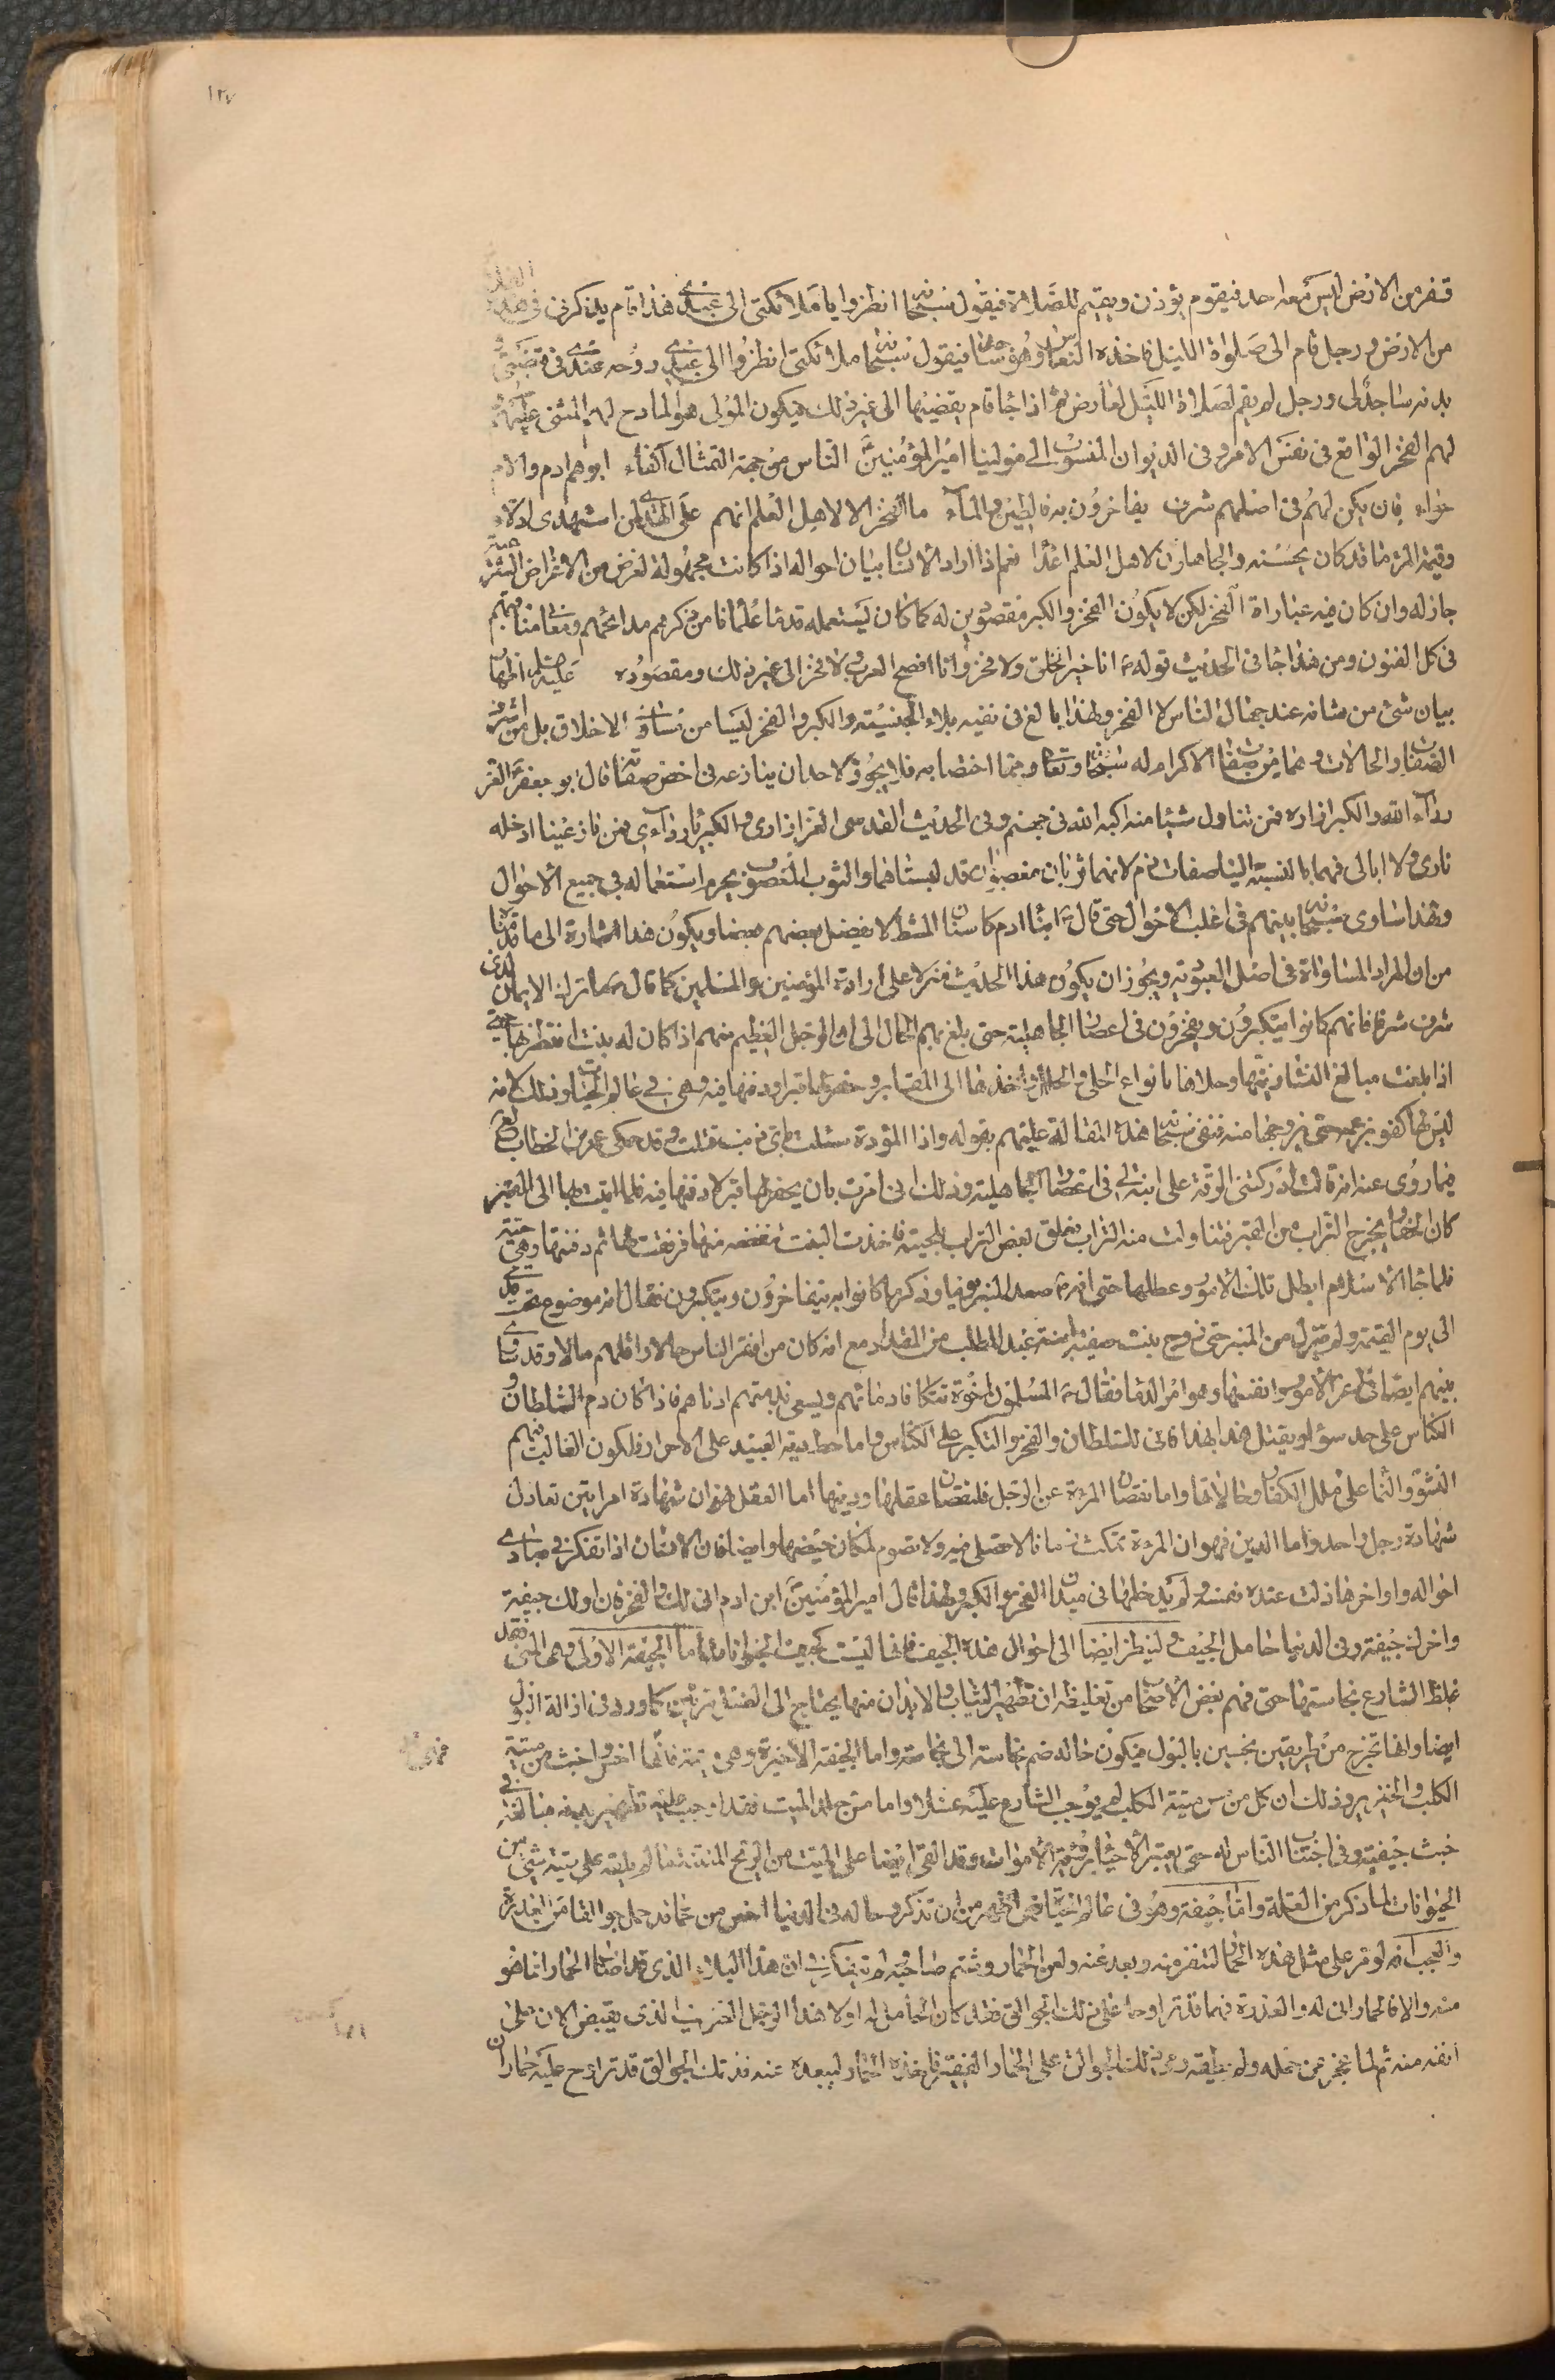 ١٢٧
قفر من الارض ليس معه احد فيقوم يؤذن ويقيم للصلاة فيقول سبحانه انظروا يا ملائكتى الى عبدى هذا قام يذكرنى فى هذه
من الارض ورجل قام الى صلواة الليل فاخذه النعاس وهو ساجد فيقول سبحانه ملائكتى انظروا الى عبدى روحه عندى فى قبضتى و
بدنه ساجد لى ورجل لم يقم لصلاة الليل لعارض ثم اذا جا قام يقضيها الى غير ذلك فيكون المولى هو المادح لهم المثنى عليهم
لهم الفخر الواقع فى نفس الامر وفى الديوان المنسوب الى مولينا امير المؤمنين الناس من جهة التمثال اكفاء ابوهم ادم والام
حواء فان يكن لهم فى اصلهم شرف يفاخرون به فالطين والماء ما الفخر الا لاهل العلم انهم على الهدى لمن استهدى ادلاء
وقيمة المرء ما قد كان يحسنه والجاهلون لاهل العلم اعداء نعم اذا اراد الانسان بيان احواله اذا كانت مجهولة لغرض من الاغراض
جاز له وان كان فيه عباراة الفخر لكن لا يكون الفخر والكبر مقصودين له كما كان يستعمله قدماء علمائنا من ذكرهم مدائحهم ومقاماتهم
فى كل الفنون ومن هذا جا فى الحديث قوله انا خير الخلق ولا فخر وانا افصح العرب ولا فخر الى غير ذلك ومقصوده عليه
بيان شئ من شانه عند جهال الناس لا الفخر ولهذا بالغ فى نفيه بلاء الجنسيته والكبر والفخر ليسا من مساوى الاخلاق بل من اشرف
الصفات والحالات وهما من صفات الاكرام له سبحانه وتعالى ومما اختصا به فلا يجوز لاحد ان ينازعه فى اخص صفاته قال ابو جعفر العز
رداء الله والكبر ازاره فمن تناول شيئا منه اكبه الله فى جهنم وفى الحديث القدسى العز ازارى والكبرياء ردآءى فمن نازعنيها ادخله
نارى ولا ابالى فهما بالنسبة الينا صفات ذم لانهما ثوبان مغصوبان قد لبسناهما والثوب المغصوب يحرم استعماله فى جميع الاحوال
ولهذا ساوى سبحانه بينهم فى اغلب الاحوال حتى قال ابناء ادم كاسنان المشط لا يفضل بعضهم بعضا ويكون هذا اشارة الى ما قدمنا
من ان المراد المساواة فى اصل العبودية ويجوز ان يكون هذا الحديث منزلا على ارادة المؤمنين والمسلمين كما قال ما ترك الايمان لذى
شرف شرفا فانهم كانوا يتكبرون ويفخرون فى اعصار الجاهلية حتى بلغ بهم الحال الى ان الرجل العظيم منهم اذا كان له بنت انتظر بها حتى
اذا بلغت مبالغ النساء زينها وحلاها بانواع الحلى والحلل واخذها الى المقابر وحفر لها قبرا ودفنها فيه وهى فى عالم الحياة وذلك لانه
ليس لها كفو يزعمه حتى يزوجها منه فنفى سبحانه هذه المقالة عليهم بقوله واذا المؤدة سئلت باى ذنب قتلت وقد حكى عمر بن الخطاب
فيما روى عنه انه قال ادركتنى الرقة على ابنة لى فى اعصار الجاهلية وذلك انى امرت بان يحفر لها قبر لادفنها فيه فلما اتيت بها الى القبر
كان الحفار يخرج التراب من القبر فتناولت منه التراب فعلق بعض التراب بلحيته فاخذت البنت تنفضه منها فرققت لها ثم دفنتها وهى حية
فلما جا الاسلام ابطل تلك الامور وعطلها حتى انه صعد المنبر يوما وذكر ما كانوا به يتفاخرون ويتكبرون فقال انه موضوع تحت قدمى
الى يوم القيمة ولم ينزل من المنبر حتى زوج بنت صفية ابنة عبد المطلب من المقداد مع انه كان من افقر الناس حالا واقلهم مالا وقد ساوى
بينهم ايضا فى اعز الامور وانفسها وهو امر الدما فقال المسلمون اخوة تتكافا دمائهم ويسعى بذمتهم ادناهم فاذا كان دم السلطان و
الكناس على حد سواء لو يقتل هذا بهذا فانى للسلطان والفخر والتكبر على الكناس واما حط دية العبيد على الاحرار فلكون الغالب منهم
النشؤ والنما على ملل الكفار وحالاتها واما نقصان المرءة عن الرجل فلنقصان عقلها ودينها اما العقل فهو ان شهادة امراتين تعادل
شهادة رجل واحد واما الدين فهو ان المرءة تمكث زمانا لا تصلى فيه ولا تصوم لمكان حيضها وايضا فان الانسان اذا تفكر فى مبادى
احواله واواخرها ذلت عنده نفسه ولم يدخلها فى ميدان الفخر والكبر ولهذا قال امير المؤمنين ابن ادم انى لك والفخر فان اولك جيفة
واخرك جيفة وفى الدنيا حامل الجيف ولينظر ايضا الى احوال هذه الجيف فانها ليست كجيف الحيوانات اما الجيفة الاولى وهى المنى فقد
غلظ الشارع نجاستها حتى فهم بعض الاصحاب من تغليظه ان تطهير الثياب والابدان منها يحتاج الى الغسل مرتين كما ورد فى ازالة البول
ايضا وانها تخرج من طريقين نجسين بالبول فيكون خالد ضم نجاسته الى نجاسته واما الجيفة الاخيرة وهى ميتة فانها اخس واخبث من ميتة
الكلب والخنزير وذلك ان كل من مس ميتة الكلب لم يوجب الشارع عليه غسلا واما من مس الميت فقد اوجب عليه تطهير بدنه مبالغة فى
خبث جيفته وفى اجتناب الناس له حتى يعتبر الاحياء برؤية الاموات وقد القى ايضا على الميت من الريح المنتنة ما لم يلقه على ميتة شئ من
الحيوانات لما ذكر من العلة واما جيفة وهو فى عالم الحياة فهى اظهر من ان تذكر وحاله فى الدنيا اخس من حمار قد حمل جوالقا من العذرة
والعجب انه لو مر على مثل هذه الحال لتنفر منه وبعد عنه ولعن الحمار وشتم صاحبه ولم يتفكر فى ان هذا البلاء الذى قد اصاب الحمار انما هو
منه والا فالحمار انى له والعذرة فهما قد تراوحا على ذلك الجوالق فقد كان الحامل له اولا هذا الرجل الخريف الذى يقبض الان على
انفه منه ثم لما عجز عن حمله ولم يطيقه رمى تلك الجوالق على الحمار الضعيف فاخذه الحمار ليبعده عنه فذ تلك الجوالق قد تراوح عليه حماران